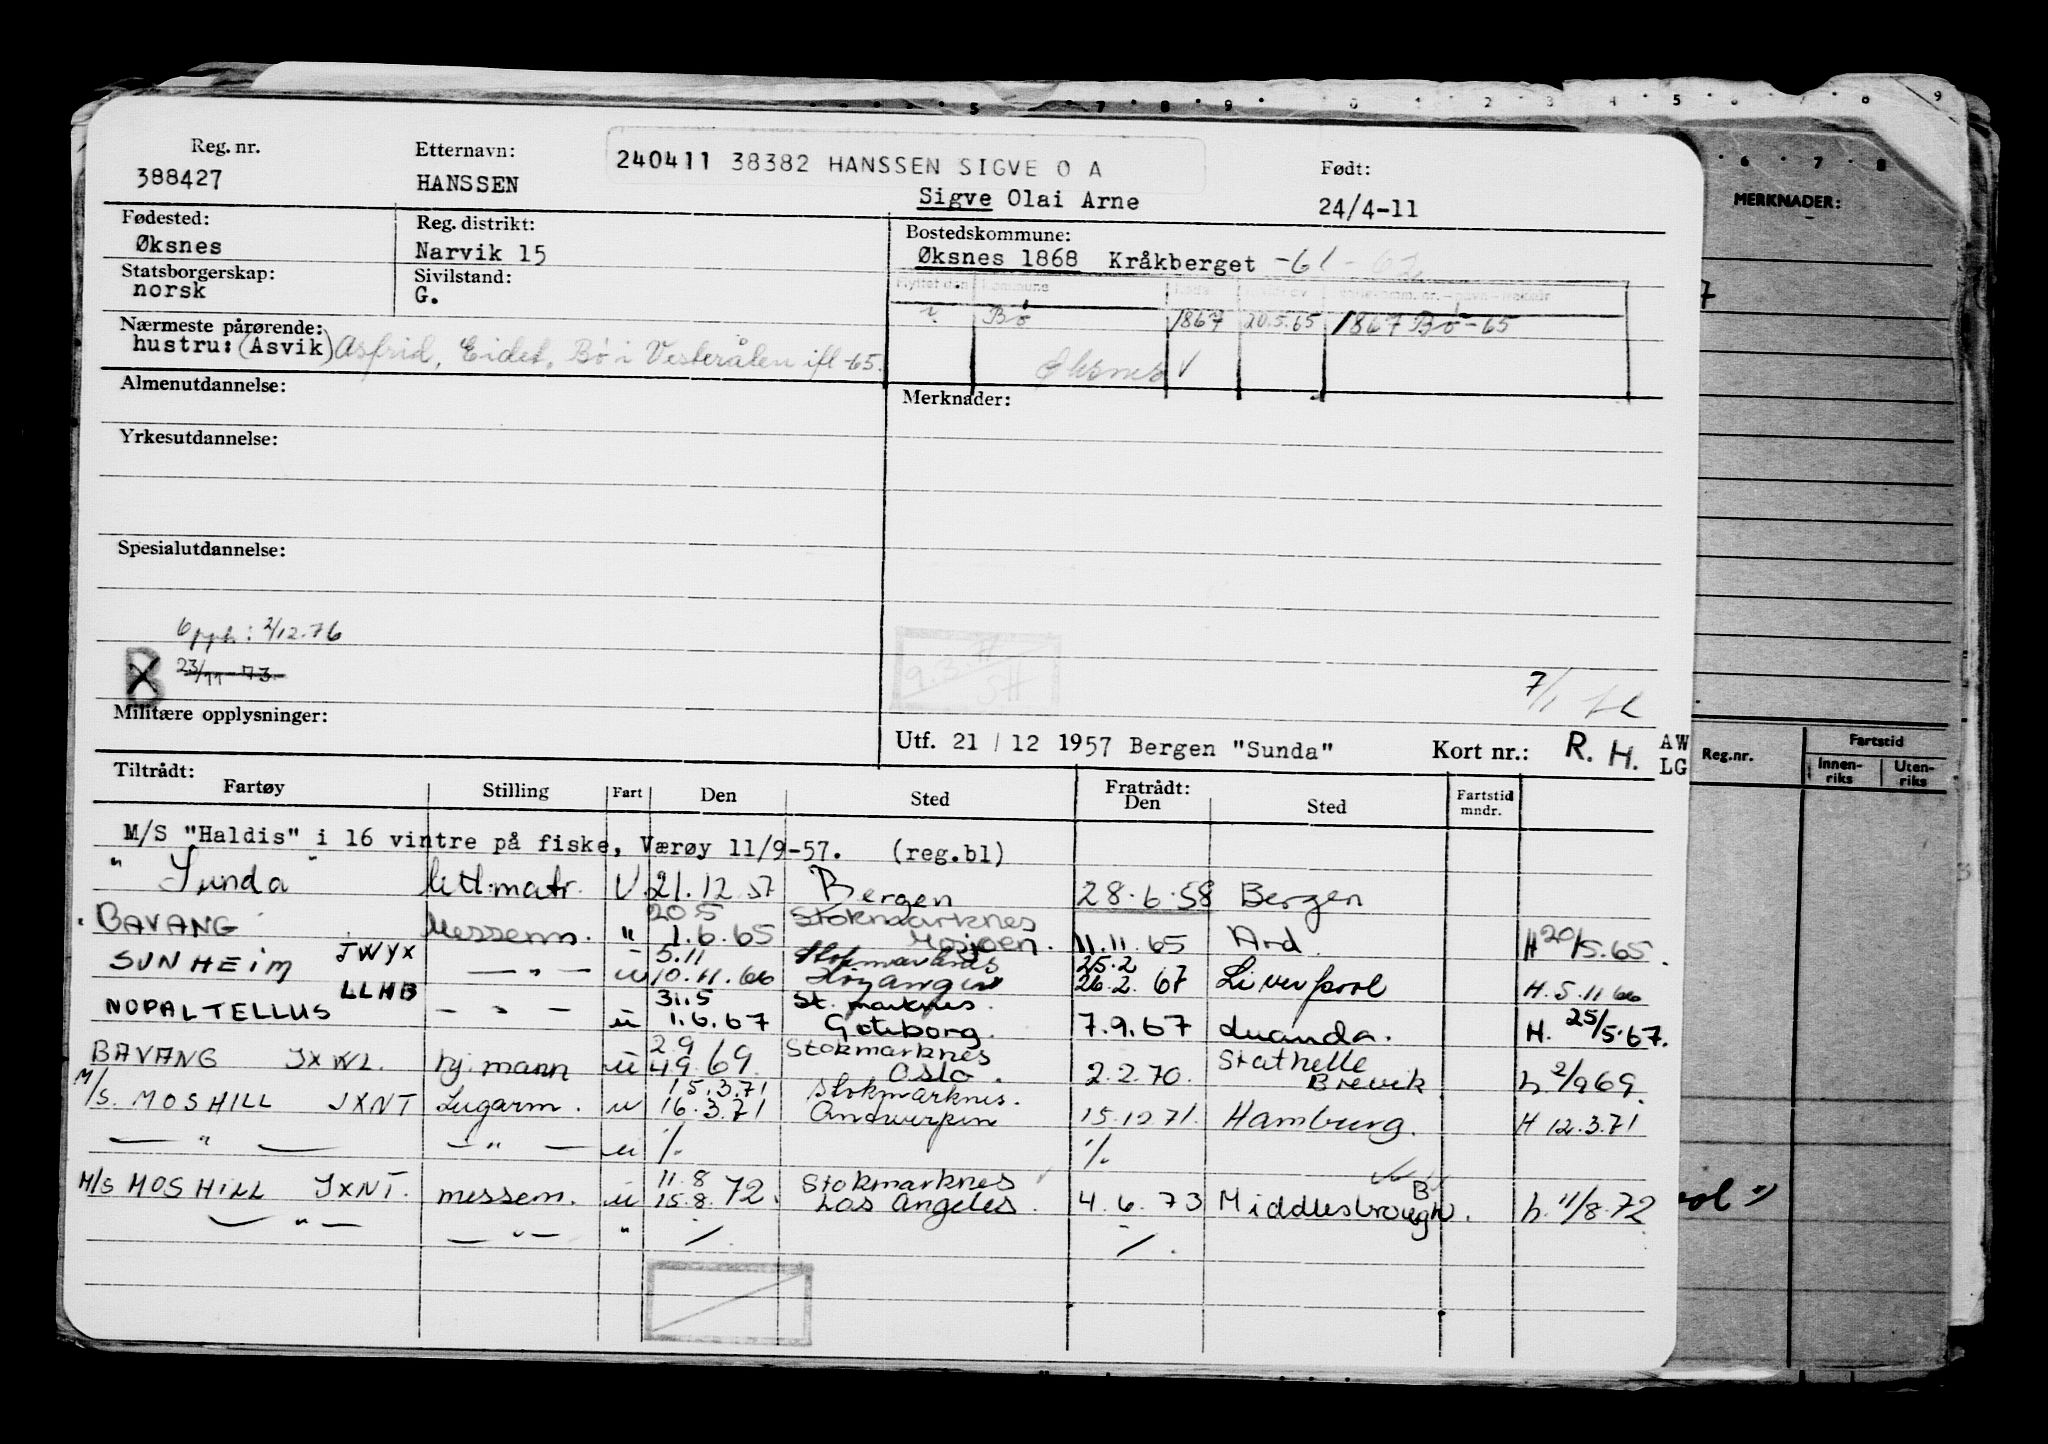 Reg. nr. Etternavn: 240411 38382 HANSSEN SIGVE O A Født:
388427 HANSSEN Sigve Olai Arne 24/4-11
Fødested: Reg. distrikt: Bostedskommune:
Øksnes Narvik 15 Øksnes 1868 Kråkberget -61-62
Statsborgerskap: Sivilstand:
norsk G.
Flyttet den Kommune
Bø 1867 20.5.65 1867 Bø -65
Nærmeste pårørende:
hustru: (Asvik) Asfrid, Eidet, Bø i Vesterålen ifl -65.
Øksnes √
Almenutdannelse: Merknader:
Yrkesutdannelse:
Spesialutdannelse:
Opph: 2/12.76
B X 23/11-73
9.3.71 SH
7/1
Militære opplysninger:
Utf. 21 / 12 1957 Bergen "Sunda" Kort nr.: R. H. AW
LG
Tiltrådt: Fratrådt:
Fartøy Stilling Fart Den Sted Den Sted Fartstid mndr.
M/S "Haldis" i 16 vintre på fiske, Værøy 11/9-57. (reg.bl)
" Sunda " lettmatr. U. 21.12.57 Bergen 28.6.58 Bergen
20.5 Stokmarknes
" BAVANG Messem. " 1.6.65 Mosjøen. 11.11.65 H 20/5.65.
JWYX 5.11 Stokmarknes 25.2
SUNHEIM — " — u 10.11.66 26.2.67 Liverpool H. 5.11 66
LLHB 31.5 St. marknes.
NOPAL TELLUS — " — u 1.6.67 Gøteborg. 7.9.67 Luanda. H. 25/5.67.
2.9 Stokmarknes Stathelle
BAVANG JXWL. hj. mann u 4.9.69. Oslo. 2.2.70. Brevik h. 2/9 69.
15.3.71 Stokmarknes.
M/S. MOSHILL JXNT Lugarm. u 16.3.71 Antwerpen 15.12.71. Hamburg. H 12.3.71
— " — — " — u ./. ./.
11.8 Stokmarknes
M/S MOSHILL JXNT. messem. u 15.8.72. Los Angeles. 4.6.73 Middlesbrough. h. 11/8.72
— " — — " — " ./. ./.
MERKNADER:
Reg.nr. Fartstid
Innen-riks Uten-riks